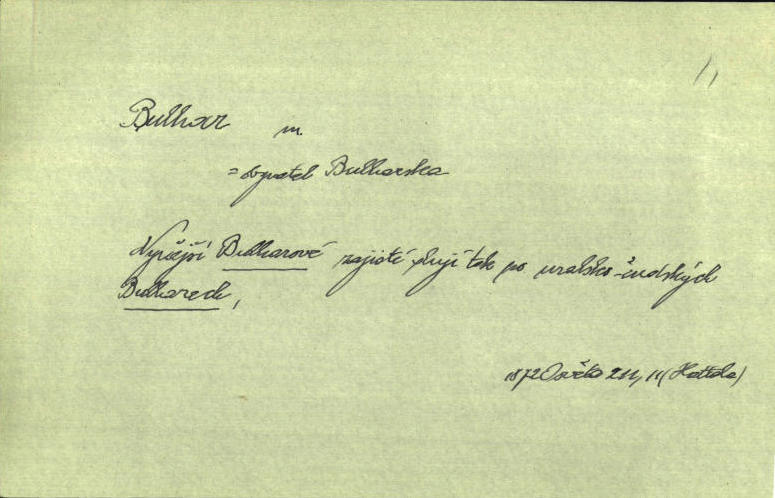 Bulhar m.
= obyvatel Bulharska
Nynější Bulharové zajisté slují tak po uralsko-čudských
Bulharech,
1872 Osvěta 211, II (Hattala)